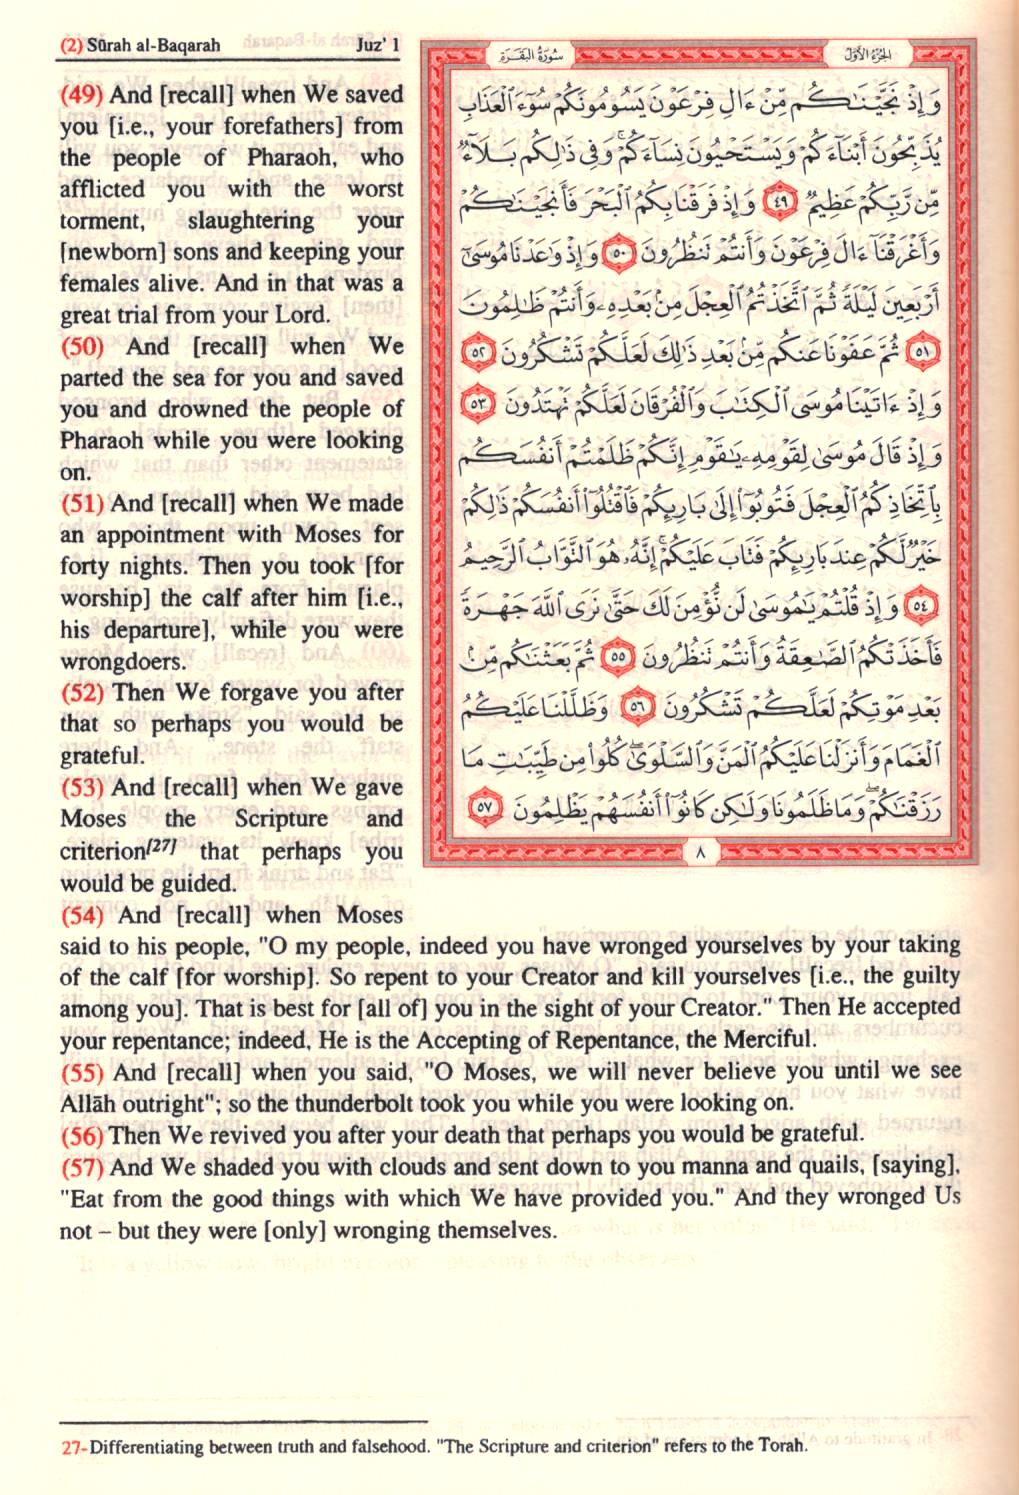 (2) Sūrah al-Baqarah Juz' 1
(49) And [recall] when We saved
you [i.e., your forefathers] from
the people of Pharaoh, who
afflicted you with the worst
torment, slaughtering your
[newborn] sons and keeping your
females alive. And in that was a
great trial from your Lord.
(50) And [recall] when We
parted the sea for you and saved
you and drowned the people of
Pharaoh while you were looking
on.
(51) And [recall] when We made
an appointment with Moses for
forty nights. Then you took [for
worship] the calf after him [i.e.,
his departure], while you were
wrongdoers.
(52) Then We forgave you after
that so perhaps you would be
grateful.
(53) And [recall] when We gave
Moses the Scripture and
criterion[27] that perhaps you
would be guided.
(54) And [recall] when Moses
الجزء الأول سورة البقرة
وَإِذْ نَجَّيْنَـٰكُم مِّنْ ءَالِ فِرْعَوْنَ يَسُومُونَكُمْ سُوٓءَ ٱلْعَذَابِ
يُذَبِّحُونَ أَبْنَآءَكُمْ وَيَسْتَحْيُونَ نِسَآءَكُمْ ۚ وَفِى ذَٰلِكُم بَلَآءٌ
مِّن رَّبِّكُمْ عَظِيمٌ ٤٩ وَإِذْ فَرَقْنَا بِكُمُ ٱلْبَحْرَ فَأَنجَيْنَـٰكُمْ
وَأَغْرَقْنَآ ءَالَ فِرْعَوْنَ وَأَنتُمْ تَنظُرُونَ ٥٠ وَإِذْ وَٰعَدْنَا مُوسَىٰٓ
أَرْبَعِينَ لَيْلَةً ثُمَّ ٱتَّخَذْتُمُ ٱلْعِجْلَ مِنۢ بَعْدِهِۦ وَأَنتُمْ ظَـٰلِمُونَ
٥١ ثُمَّ عَفَوْنَا عَنكُم مِّنۢ بَعْدِ ذَٰلِكَ لَعَلَّكُمْ تَشْكُرُونَ ٥٢
وَإِذْ ءَاتَيْنَا مُوسَى ٱلْكِتَـٰبَ وَٱلْفُرْقَانَ لَعَلَّكُمْ تَهْتَدُونَ ٥٣
وَإِذْ قَالَ مُوسَىٰ لِقَوْمِهِۦ يَـٰقَوْمِ إِنَّكُمْ ظَلَمْتُمْ أَنفُسَكُم
بِٱتِّخَاذِكُمُ ٱلْعِجْلَ فَتُوبُوٓا۟ إِلَىٰ بَارِئِكُمْ فَٱقْتُلُوٓا۟ أَنفُسَكُمْ ذَٰلِكُمْ
خَيْرٌ لَّكُمْ عِندَ بَارِئِكُمْ فَتَابَ عَلَيْكُمْ ۚ إِنَّهُۥ هُوَ ٱلتَّوَّابُ ٱلرَّحِيمُ
٥٤ وَإِذْ قُلْتُمْ يَـٰمُوسَىٰ لَن نُّؤْمِنَ لَكَ حَتَّىٰ نَرَى ٱللَّهَ جَهْرَةً
فَأَخَذَتْكُمُ ٱلصَّـٰعِقَةُ وَأَنتُمْ تَنظُرُونَ ٥٥ ثُمَّ بَعَثْنَـٰكُم مِّنۢ
بَعْدِ مَوْتِكُمْ لَعَلَّكُمْ تَشْكُرُونَ ٥٦ وَظَلَّلْنَا عَلَيْكُمُ
ٱلْغَمَامَ وَأَنزَلْنَا عَلَيْكُمُ ٱلْمَنَّ وَٱلسَّلْوَىٰ ۖ كُلُوا۟ مِن طَيِّبَـٰتِ مَا
رَزَقْنَـٰكُمْ ۖ وَمَا ظَلَمُونَا وَلَـٰكِن كَانُوٓا۟ أَنفُسَهُمْ يَظْلِمُونَ ٥٧
٨
said to his people, "O my people, indeed you have wronged yourselves by your taking
of the calf [for worship]. So repent to your Creator and kill yourselves [i.e., the guilty
among you]. That is best for [all of] you in the sight of your Creator." Then He accepted
your repentance; indeed, He is the Accepting of Repentance, the Merciful.
(55) And [recall] when you said, "O Moses, we will never believe you until we see
Allāh outright"; so the thunderbolt took you while you were looking on.
(56) Then We revived you after your death that perhaps you would be grateful.
(57) And We shaded you with clouds and sent down to you manna and quails, [saying],
"Eat from the good things with which We have provided you." And they wronged Us
not – but they were [only] wronging themselves.
27-Differentiating between truth and falsehood. "The Scripture and criterion" refers to the Torah.